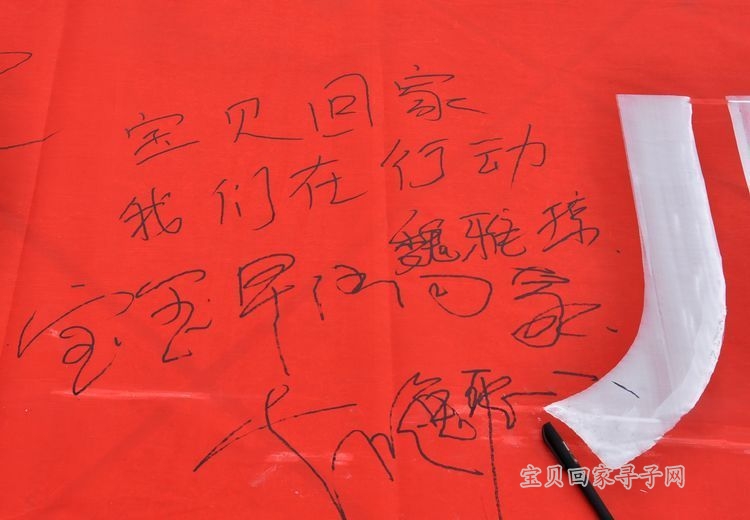 宝贝回家
我们在行动
魏雅琼
宝宝早仴回家
宝贝回家寻子网